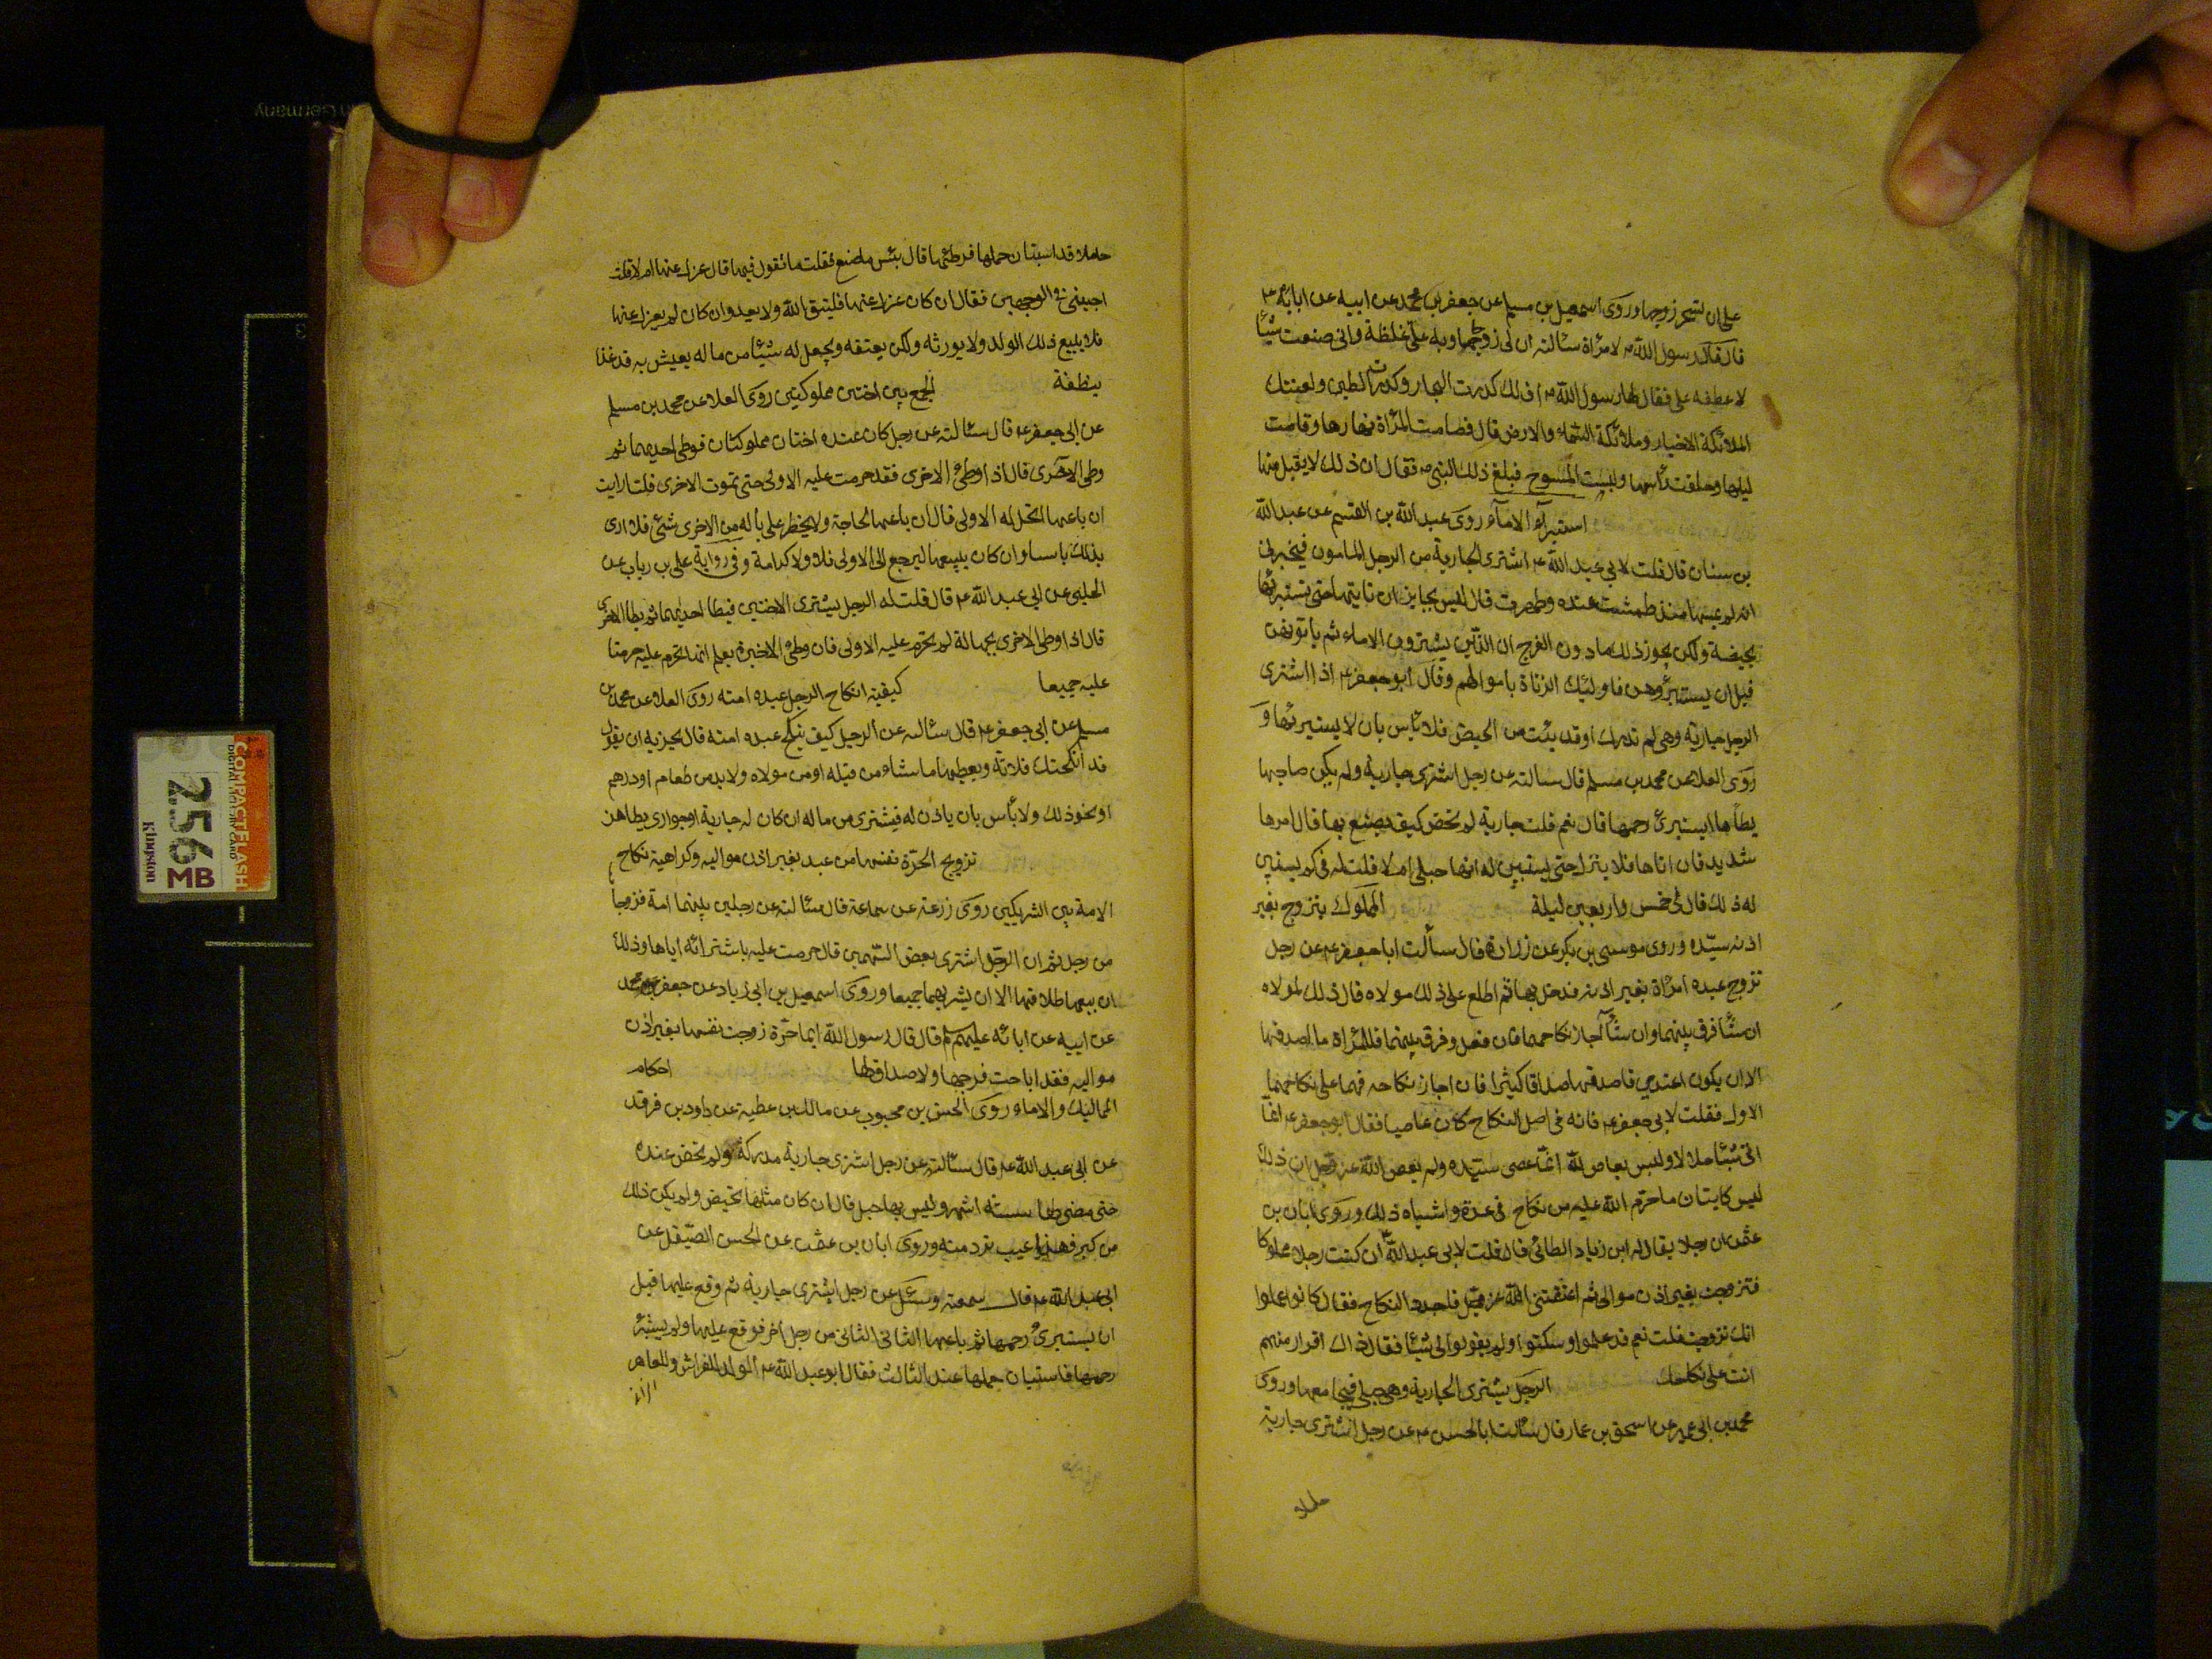 على ان تسحر زوجها وروى اسمعيل بن مسلم عن جعفر بن محمد عن ابيه عن ابائه ع
قال قال رسول الله ص لامرأة سألته ان لى زوجا وبه على غلظة وانى صنعت شيئا
لاعطفه على فقال لها رسول الله ص اف لك كدرت البحار وكدرت الطين ولعنتك
الملائكة الاخيار وملائكة السماء والارض قال فصامت المرأة نهارها وقامت
ليلها وحلقت رأسها ولبست المسوح فبلغ ذلك النبى ص فقال ان ذلك لا يقبل منها
استبرآء الامآء روى عبد الله بن القسم عن عبد الله
بن سنان قال قلت لابى عبد الله ع اشترى الجارية من الرجل المامون فيخبرنى
انه لم يمسها منذ طمثت عنده وطهرت قال ليس بجايز ان تاتيها حتى تستبرئها
بحيضة ولكن يجوز ذلك ما دون الفرج ان الذين يشترون الاماء ثم ياتونهن
قبل ان يستبرؤهن فاولئك الزناة باموالهم وقال ابو جعفر ع اذا اشترى
الرجل جارية وهى لم تدرك او قد يئست من الحيض فلا بأس بان لا يستبرئها و
روى العلا عن محمد بن مسلم قال سالته عن رجل اشترى جارية ولم يكن صاحبها
يطأها ايستبرئ رحمها قال نعم قلت جارية لم تحض كيف يصنع بها قال امرها
شديد فان اتاها فلا ينزل حتى يستبين له انها حبلى ام لا قلت له فى كم يستبين
له ذلك قال فى خمس واربعين ليلة المملوك يتزوج بغير
اذن سيّده وروى موسى بن بكر عن زرارة قال سألت ابا جعفر ع عن رجل
تزوج عبده امرأة بغير اذنه فدخل بها ثم اطلع على ذلك مولاه قال ذلك لمولاه
ان شآ فرق بينهما وان شآ اجاز نكاحهما فان فعل وفرق بينهما فللمرأة ما اصدقها
الا ان يكون اعتدى فاصدقها صداقا كثيرا فان اجاز نكاحه فهما على نكاحهما
الاول فقلت لابى جعفر ع فانه فى اصل النكاح كان عاصيا فقال ابو جعفر ع انما
اتى شيئا حلالا وليس بعاص لله انما عصى سيّده ولم يعص الله عز وجل ان ذلك
ليس كاتيان ما حرم الله عليه من نكاح فى عدة واشباه ذلك وروى ابان بن
عثمن ان رجلا يقال له ابن زياد الطائى قال قلت لابى عبد الله ع ان كنت رجلا مملوكا
فتزوجت بغير اذن موالى ثم اعتقنى الله عز وجل فاجدد النكاح فقال كانوا علموا
انك تزوجت قلت نعم قد علموا وسكتوا ولم يقولوا لى شيئا فقال ذلك اقرار منهم
انت على نكاحك الرجل يشترى الجارية وهى حبلى فيجامعها وروى
محمد بن ابى عمير عن اسحق بن عمار قال سألت ابا الحسن ع عن رجل اشترى جارية
حاملا
حاملا قد استبان حملها فوطئها قال بئس ما صنع فقلت ما تقول فيها قال عزل عنها ام لا قلت
اجبنى فى الوجهين فقال ان كان عزل عنها فليتق الله ولا يعد وان كان لم يعزل عنها
فلا يبيع ذلك الولد ولا يورثه ولكن يعتقه ويجعل له شيئا من ماله يعيش به قد غذا
بنطفة الجمع بين اختين مملوكتين روى العلا عن محمد بن مسلم
عن ابى جعفر ع قال سئالته عن رجل كان عنده اختان مملوكتان فوطى احديهما ثم
وطى الاخرى قال اذا وطئ الاخرى فقد حرمت عليه الاولى حتى تموت الاخرى قلت ارايت
ان باعها اتحل له الاولى قال ان باعها لحاجة ولا يخطر على باله من الاخرى شئ فلا ارى
بذلك باسا وان كان يبيعها ليرجع الى الاولى فلا ولا كرامة وفى رواية على بن رياب عن
الحلبى عن ابى عبد الله ع قال قلت له الرجل يشترى الاختين فيطا احديهما ثم يطا الاخرى
قال اذا وطى الاخرى بجهالة لم تحرم عليه الاولى فان وطئ الاخيرة يعلم انها تحرم عليه حرمتا
عليه جميعا كيفية انكاح الرجل عبده امته روى العلا عن محمد بن
مسلم عن ابى جعفر ع قال سئالته عن الرجل كيف ينكح عبده امته قال يجزيه ان يقول
قد انكحتك فلانة ويعطيها ما شاء من قبله او من مولاه ولا بد من طعام او درهم
او نحو ذلك ولا بأس بان ياذن له فيشترى من ماله ان كان له جارية او جوارى يطاهن
تزويج الحرة نفسها من عبد بغير اذن مواليه وكراهية نكاح
الامة بين الشريكين روى زرعة عن سماعة قال سئالته عن رجلين بينهما امة فزوجا
من رجل ثم ان الرجل اشترى بعض السهمين قال حرمت عليه باشترائه اياها وذلك
ان بيعها طلاقها الا ان يشتريهما جميعا وروى اسمعيل بن ابى زياد عن جعفر بن محمد
عن ابيه عن ابائه عليهم السلم قال قال رسول الله ايما حرة زوجت نفسها بغير اذن
مواليه فقد اباحت فرجها ولا صداق لها احكام
المماليك والاماء روى الحسن بن محبوب عن مالك بن عطية عن داود بن فرقد
عن ابى عبد الله ع قال سئالته عن رجل اشترى جارية مدركة ولم تحض عنده
حتى مضى لها ستة اشهر وليس بها حبل قال ان كان مثلها تحيض ولم يكن ذلك
من كبر فهذا عيب ترد منه وروى ابان بن عثمن عن الحسن الصيقل عن
ابى عبد الله ع قال سمعته وسئل عن رجل اشترى جارية ثم وقع عليها قبل
ان يستبرئ رحمها ثم باعها الثانى الثانى من رجل اخر فوقع عليها ولم يستبرئ
رحمها فاستبان حملها عند الثالث فقال ابو عبد الله ع الولد للفراش وللعاهر
COMPACTFLASH
256
MB
Kingston
Germany